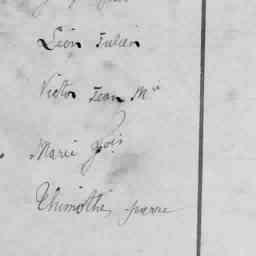 Léon Julien
Victor Jean M^ie
Marie fois
Thimothé pierre